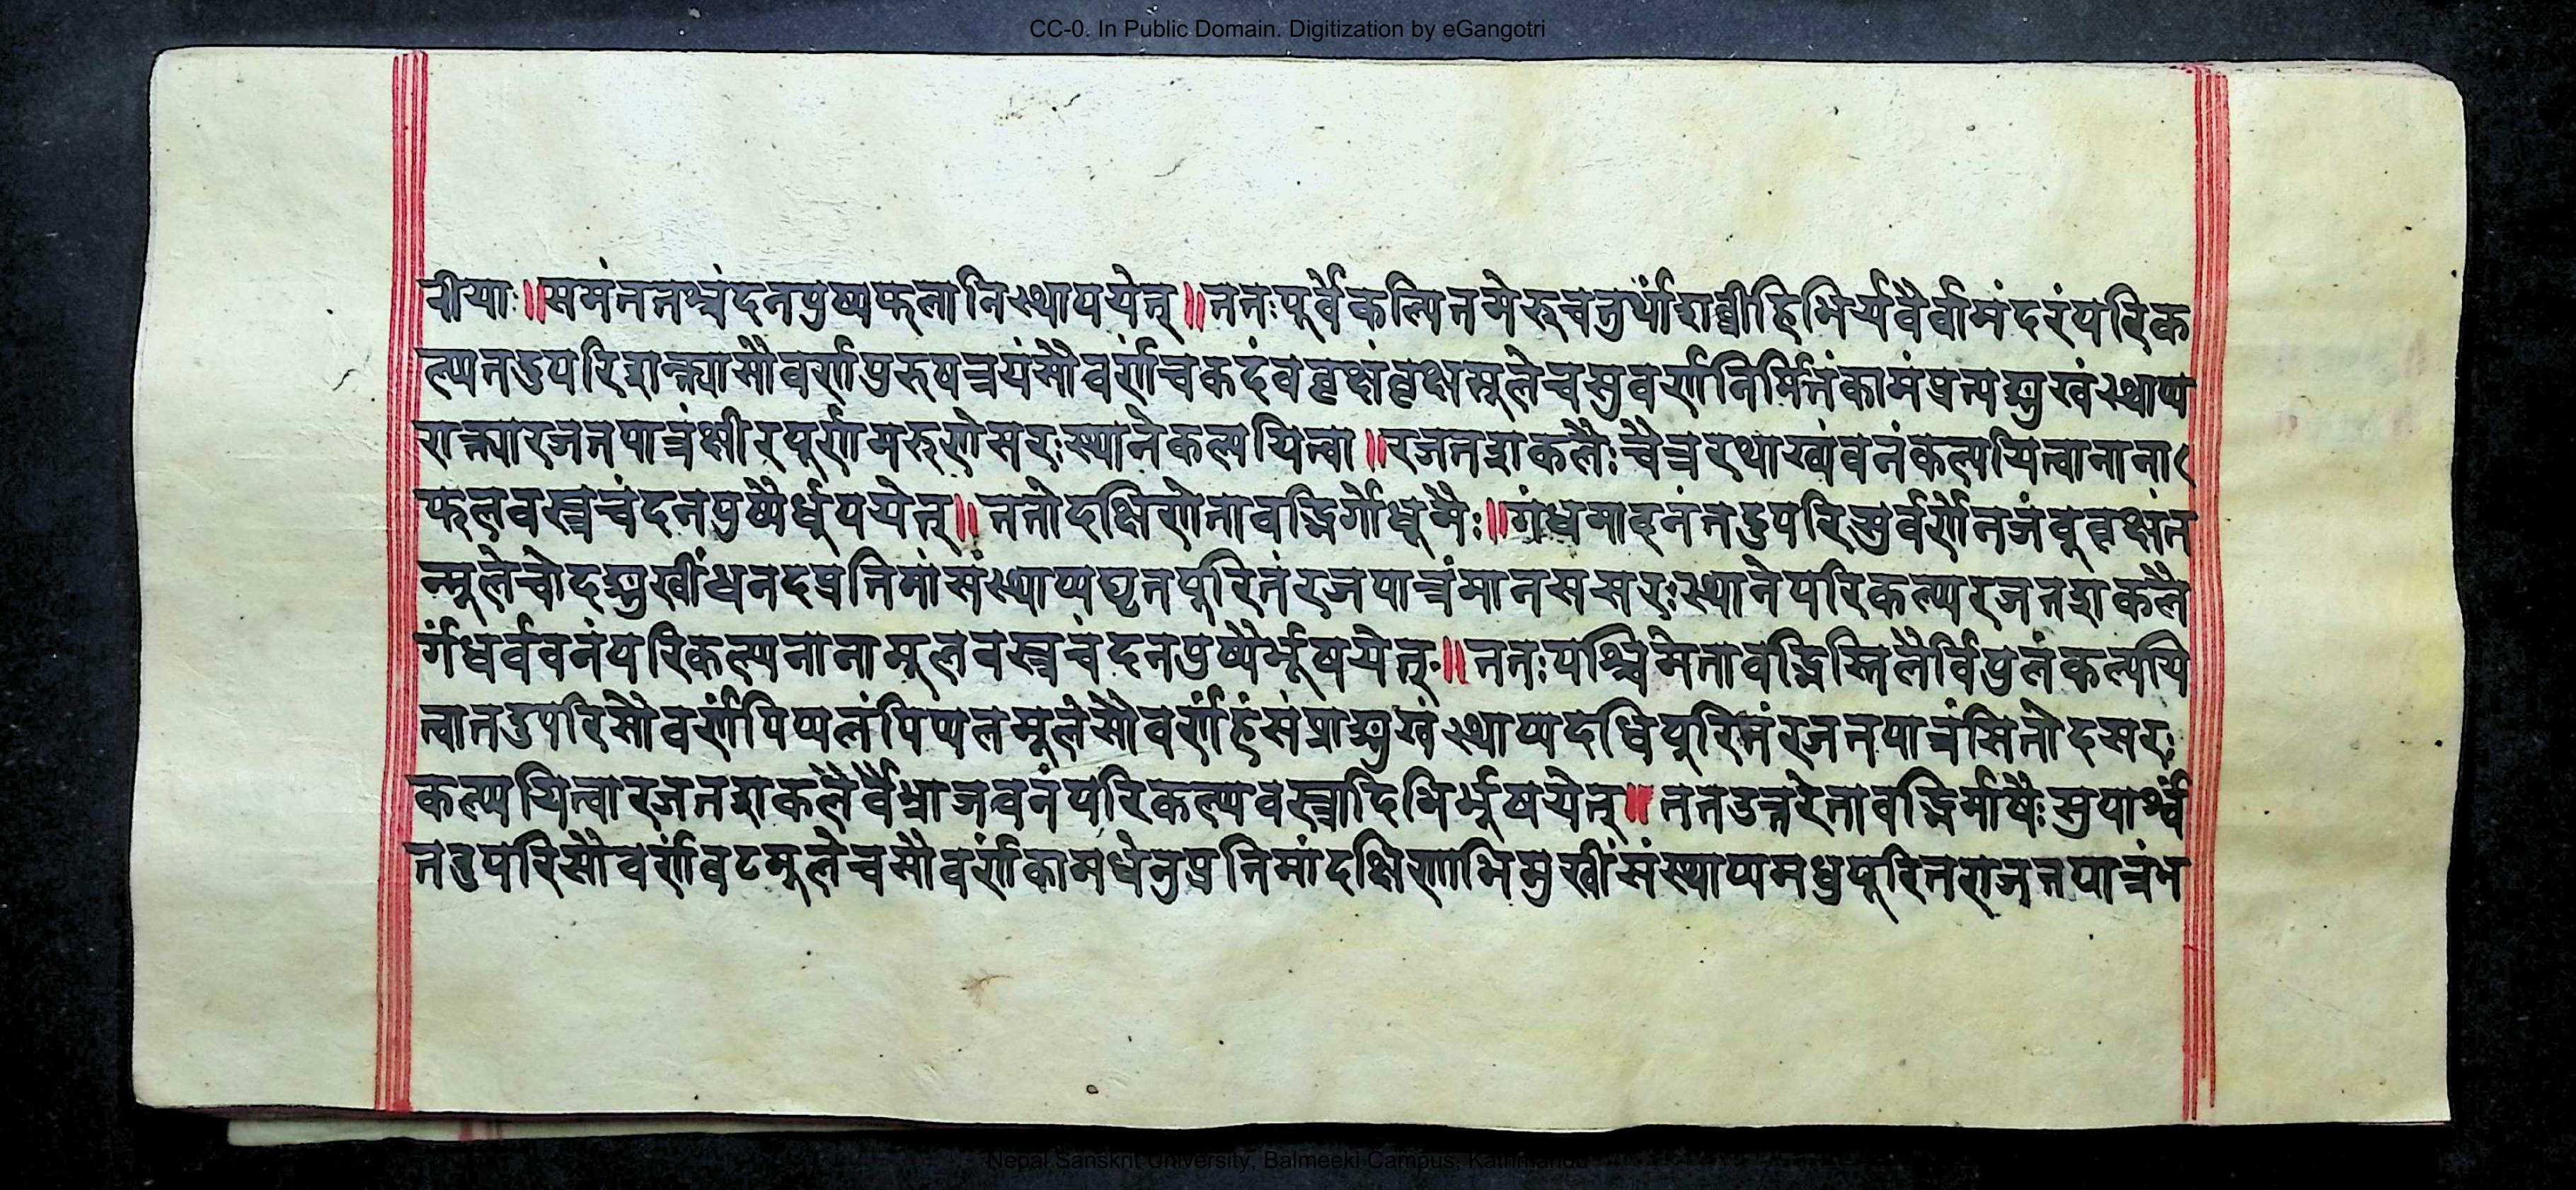 CC-0. In Public Domain. Digitization by eGangotri
नीयाः॥समंततश्चंदनपुष्पफलानिस्थापयेत्॥ततःपूर्वेकल्पितमेरुचतुर्थांशव्रीहिभिर्यवैर्वामंदरंपरिक
ल्पतदुपरिशक्त्यासौवर्णपुरुषत्रयंसौवर्णंचकदंबवृक्षंवृक्षमूलेचसुवर्णनिर्मितंकामंप्रत्यङ्मुखंस्थाप्य
शक्त्यारजतपात्रंक्षीरपूर्णमरुणोसरःस्थानेकल्पयित्वा॥रजतशकलैःचैत्ररथाख्यंवनंकल्पयित्वानाना
फलवस्त्रचंदनपुष्पैर्धूपयेत्॥ततोदक्षिणेतावद्भिर्गोधूमैः॥गंधमादनंतदुपरिसुर्वर्णेनजंबूवृक्षंत
न्मूलेचोदङ्मुखींधनदप्रतिमांसंस्थाप्यघृतपूरितंरजपात्रंमानससरःस्थानेपरिकल्प्यरजतशकलै
र्गंधर्ववनंपरिकल्प्यनानामूलवस्त्रचंदनपुष्पैर्भूषयेत्॥ततःपश्चिमेतावद्भिस्तिलैर्विपुलंकल्पयि
त्वातदुपरिसौवर्णंपिप्पलंपिप्पलमूलेसौवर्णंहंसंप्राङ्मुखंस्थाप्यदधिपूरितंरजतपात्रंसितोदसरः
कल्पयित्वारजतशकलैर्वैभ्राजवनंपरिकल्प्यवस्त्रादिभिर्भूषयेत्॥ततउत्तरेतावद्भिर्माषैःसुपार्श्वं
तदुपरिसौवर्णंवटमूलेचसौवर्णंकामधेनुप्रतिमांदक्षिणाभिमुखींसंस्थाप्यमधुपूरितराजतपात्रंभ
Nepal Sanskrit University, Balmeeki Campus, Kathmandu